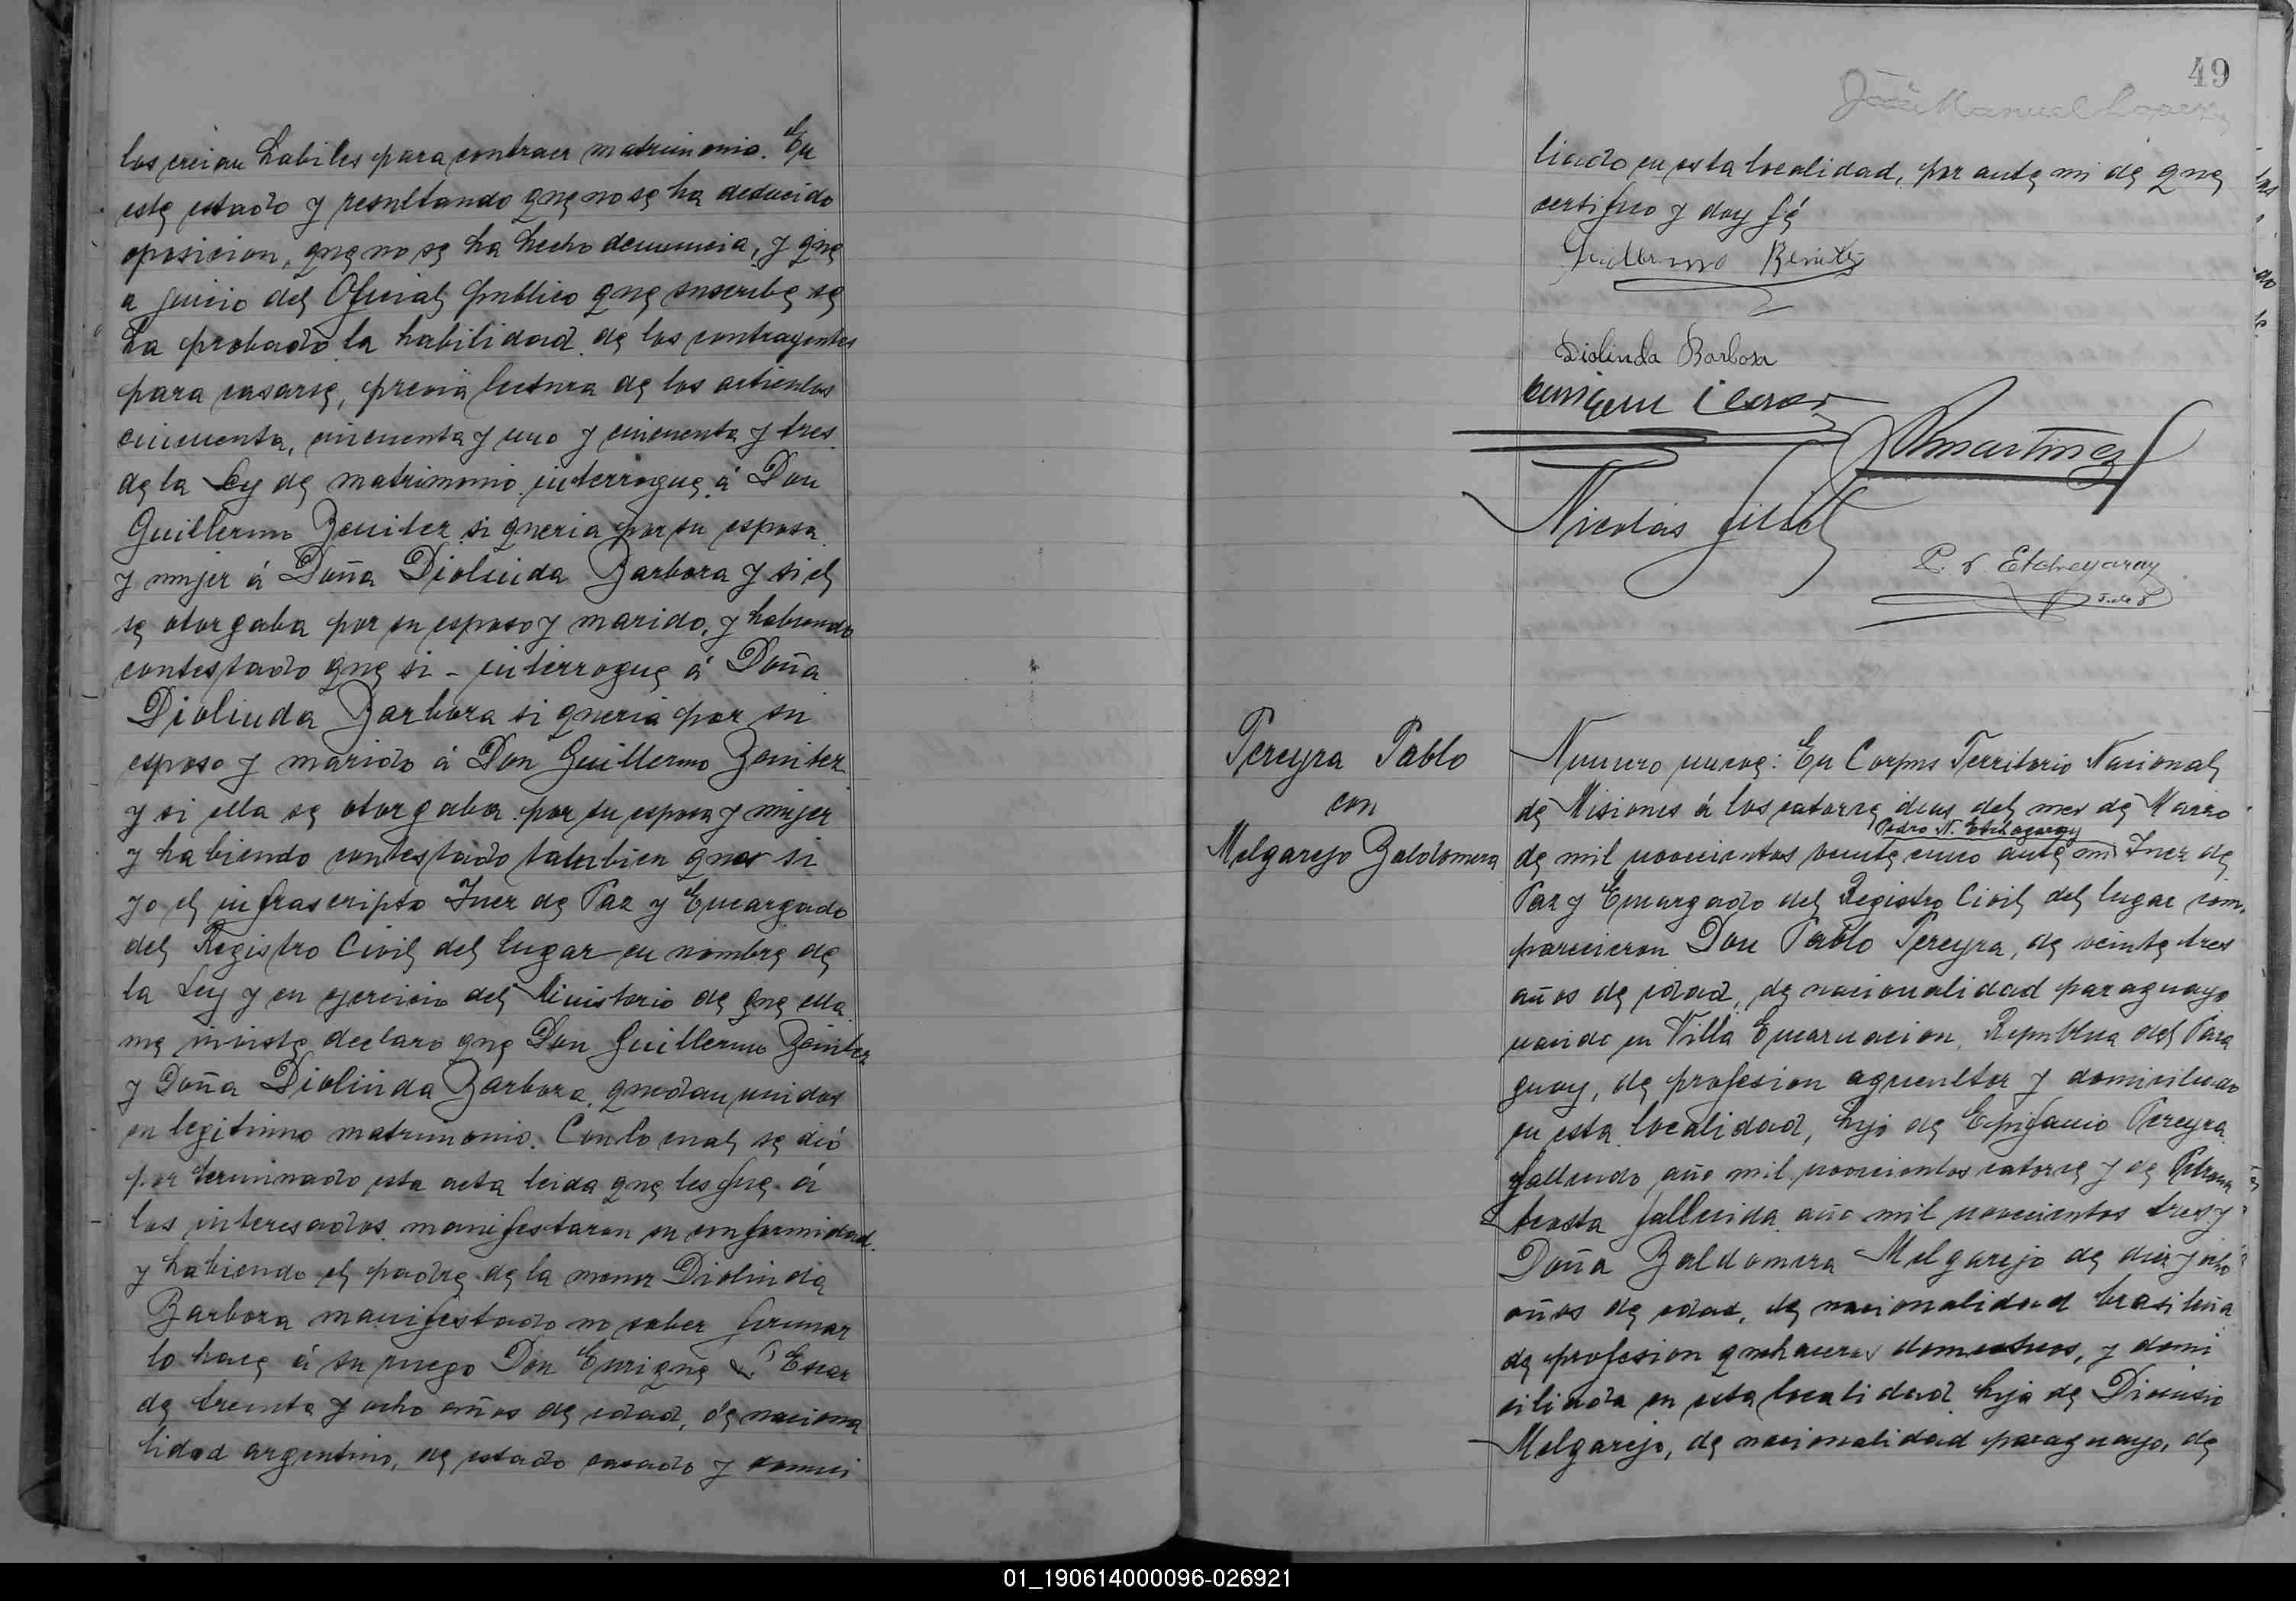 los creian habiles para contraer matrimonio. En
este estado y resultando que no se ha deducido
oposicion, que no se ha hecho denuncia, y que
a juicio del Oficial publico que suscribe se
ha probado la habilidad de los contrayentes
para casarse, previa lectura de los articulos
cincuenta, cincuenta y uno y cincuenta y tres
de la Ley de matrimonio interrogue á Don
Guillermo Beniter si queria por su esposa
y mujer á Doña Diolinda Barbora y si el
se otorgaba por su esposo y marido, y habiendo
contestado que si - interrogue á Doña
Diolinda Barbora si queria por su
esposo y marido á Don Guillermo Beniter
y si ella se otorgaba por su esposa y mujer
y habiendo contestado tambien que si
yo el infrascripto Juez de Paz y Encargado
del Registro Civil del lugar en nombre de
la Ley y en ejercicio del Ministerio de que ella
me inviste declaro que Don Guillermo Beniter
y Doña Diolinda Barbora, quedan unidos
en legitimo matrimonio. Con lo cual se dió
por terminado esta acta leida que les fue á
los interesados manifestaron su conformidad
y habiendo el padre de la menor Diolinda
Barbora manifestado no saber firmar
lo hace á su ruego Don Enrique Escar
de treinta y ocho años de edad, de naciona
lidad argentino, de estado casado y domici
49
José Manuel Lopez
liado en esta localidad, por ante mi de que
certifico y doy fé
Guillermo Benitez
Diolinda Barbosa
Martinez
Nicolás
P. N. Etchegaray
Juez
Pereyra Pablo
con
Melgarejo Baldomera
Numero nueve: En Corpus Territorio Nacional
de Misiones á los catorce dias del mes de Marzo
Pedro N. Etchegaray
de mil novecientos veinte cinco ante mi Juez de
Paz y Encargado del Registro Civil del lugar com
parecieron Don Pablo Pereyra, de veinte tres
años de edad, de nacionalidad paraguayo
nacido en Villa Encarnacion, Republica del Para
guay, de profesion agricultor y domiciliado
en esta localidad, hijo de Epifanio Pereyra
fallecido año mil novecientos catorce y de Petrona
Acosta fallecida año mil novecientos tres y
Doña Baldomera Melgarejo de diez y ocho
años de edad, de nacionalidad brasileña
de profesion quehaceres domesticos, y domi
ciliada en esta localidad hija de Dionisio
Melgarejo, de nacionalidad paraguayo, de
01_190614000096-026921